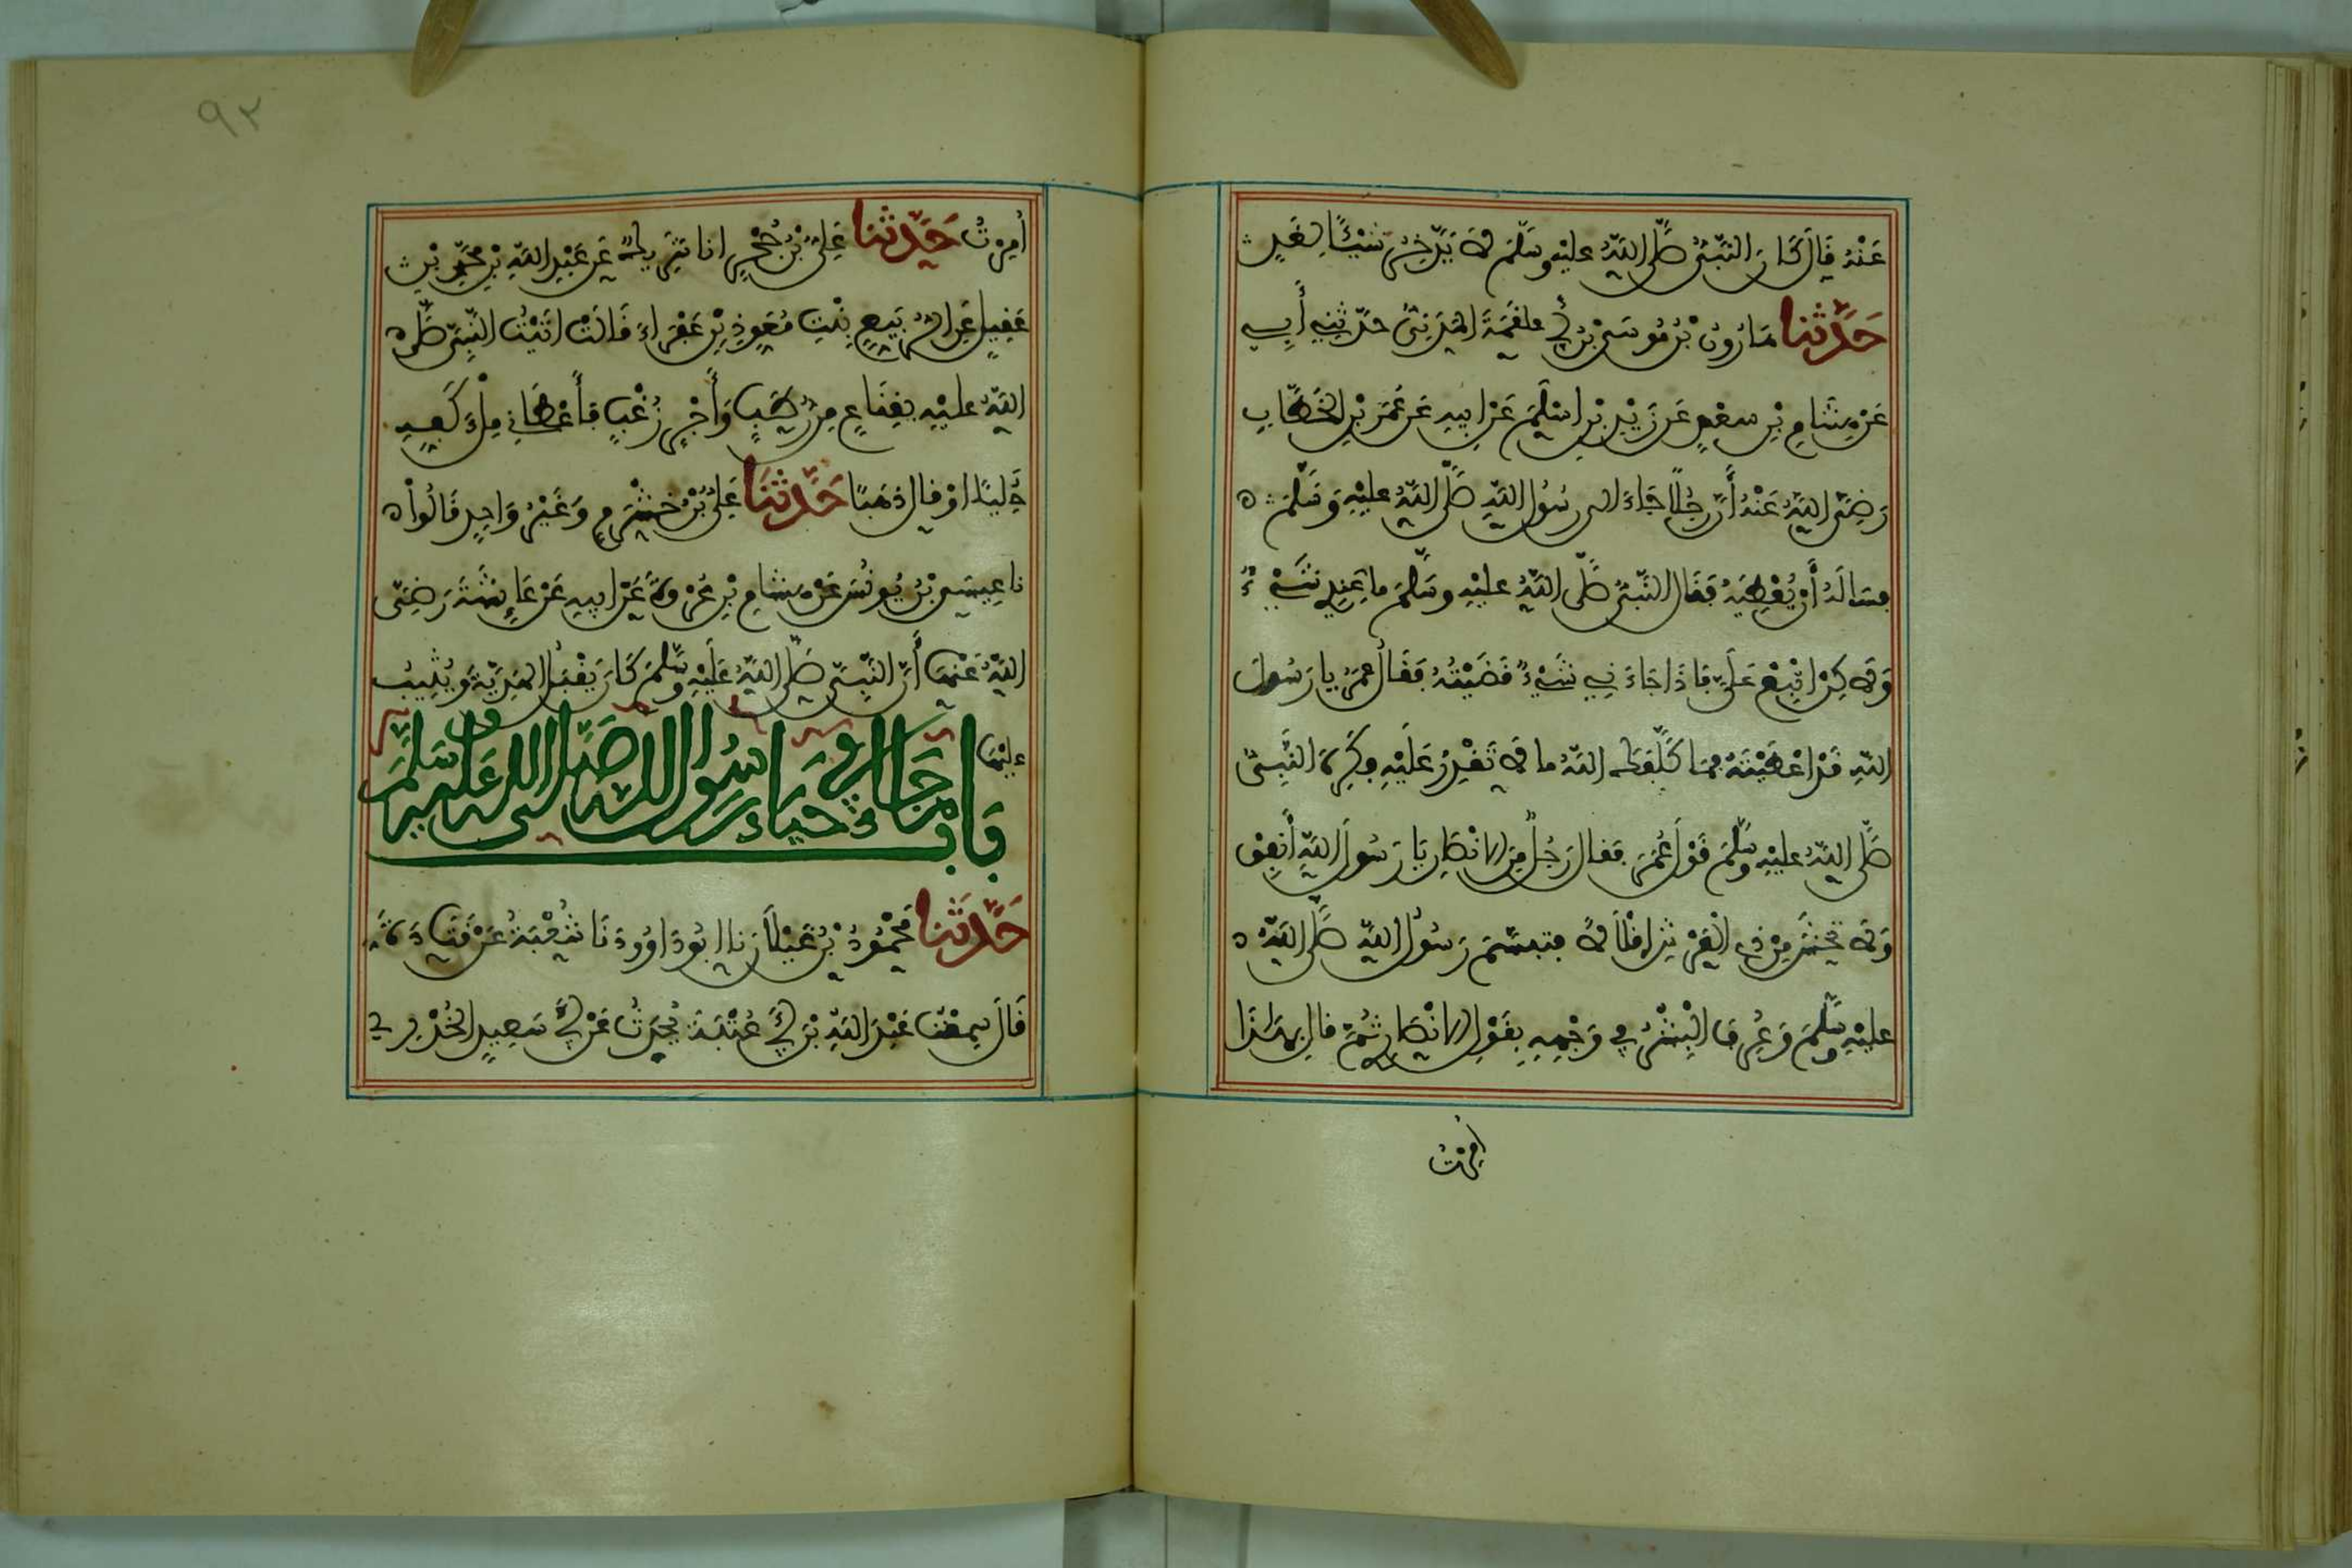 عَنْهُ قَالَ كَانَ النَّبِيُّ صَلَّى اللَّهُ عليْهِ وسَلَّمَ لاَ يَدَّخِرُ شَيْئًا لِغَدٍ
حَدَّثنا هَارُونُ بْنُ مُوسَى بْنِ أَبِي علقمَةَ الْمَدَنِيُّ حدّثَنِي أَبِي
عَنْ هِشَامِ بْنِ سعْدٍ عَن زَيْدِ بْنِ اسْلَمَ عَنْ ابِيهِ عَن عُمَرَ بْنِ الْخَطَّابِ
رَضِيَ اللَّهُ عَنْهُ أَنَّ رَجُلًا جَاءَ الى رَسُولِ اللَّهِ صَلَّى اللَّهُ عليْهِ وَسَلَّمَ
فسَالَهُ أَنْ يُعْطِيَهُ فَقَال النَّبِيُّ صَلَّى اللَّهُ عليْهِ وسَلَّمَ ما عِنْدِي شَيْءٌ
وَلاَكِنِ ابْتَعْ عَلَيَّ فَإذَا جَاءَنِي شَيْءٌ قَضَيْتُهُ فَقَالَ عُمَرُ يا رَسُولَ
اللهِ قَدْ اعْطَيْتَهُ فمَا كَلَّفَكَ اللَّهُ ما لاَ تَقْدِرُ عَلَيْهِ فكَرِهَ النَّبِيُّ
صَلَّى اللَّهُ عليْهِ وسَلَّمَ قَوْلَ عُمَرَ فقال رَجُلٌ مِنَ الانْصَارِ يَا رَسُولَ اللَّهِ أَنْفِقْ
وَلاَ تَخْشَ مِنْ ذِي الْعَرْشِ اقْلَالاً فتبسَّمَ رَسُولُ اللَّهِ صَلَّى اللَّهُ
عليْهِ وسَلَّمَ وَعُرِفَ الْبِشْرُ فِي وَجْهِهِ بِقَوْلِ الانْصَارِيِّ ثُمَّ قال بِهَذَا
امِرْتُ
أُمِرْتُ حَدَّثنا عَلِيُّ بْنُ حُجْرٍ انا شَرِيكٌ عَن عَبْدِ اللَّهِ بْنِ مُحَمَّدِ بْنِ
عَقِيلٍ عَنِ الرُّبَيِّعِ بِنْتِ مُعَوِّذِ بْنِ عَفْرَاءَ قَالَتْ اتَيْتُ النَّبِيَّ صَلَّى
اللَّهُ عليْهِ بِقِنَاعٍ مِنْ رُطَبٍ وَأَجْرٍ زُغْبٍ فَأَعْطَانِي مِلْءَ كَفِّهِ
حُلِيًّا اوْ قال ذَهَبًا حَدَّثَنَا عَلِيُّ بْنُ خَشْرَمٍ وَغَيْرُ وَاحِدٍ قَالُواْ
نا عِيسَى بْنُ يُونُسَ عَنْ هِشَامِ بْنِ عُرْوَةَ عَنْ ابِيهِ عَنْ عَائِشَةَ رَضِيَ
اللَّهُ عَنْهَا أَنَّ النَّبِيَّ صَلَّى اللَّهُ عَلَيْهِ وسَلَّمَ كَانَ يَقْبَلُ الْهَدِيَّةَ وَيُثِيبُ
عليْهَا
بَاب مَا جَاءَ فِي حَيَاءِ رَسُولِ اللهِ صَلَّى اللهُ عَلَيْهِ وَسَلَّمَ
حَدَّثَنا مَحْمُودُ بْنُ غَيْلاَنَ نا ابُو دَاوُودَ نَا شُعْبَةُ عَنْ قَتَادَةَ
قَالَ سمِعْتُ عَبْدَ اللَّهِ بْنَ أَبِي عُتْبَةَ يُحَدِّثُ عَنْ أَبِي سَعِيدٍ الْخُدْرِيِّ
٩٣